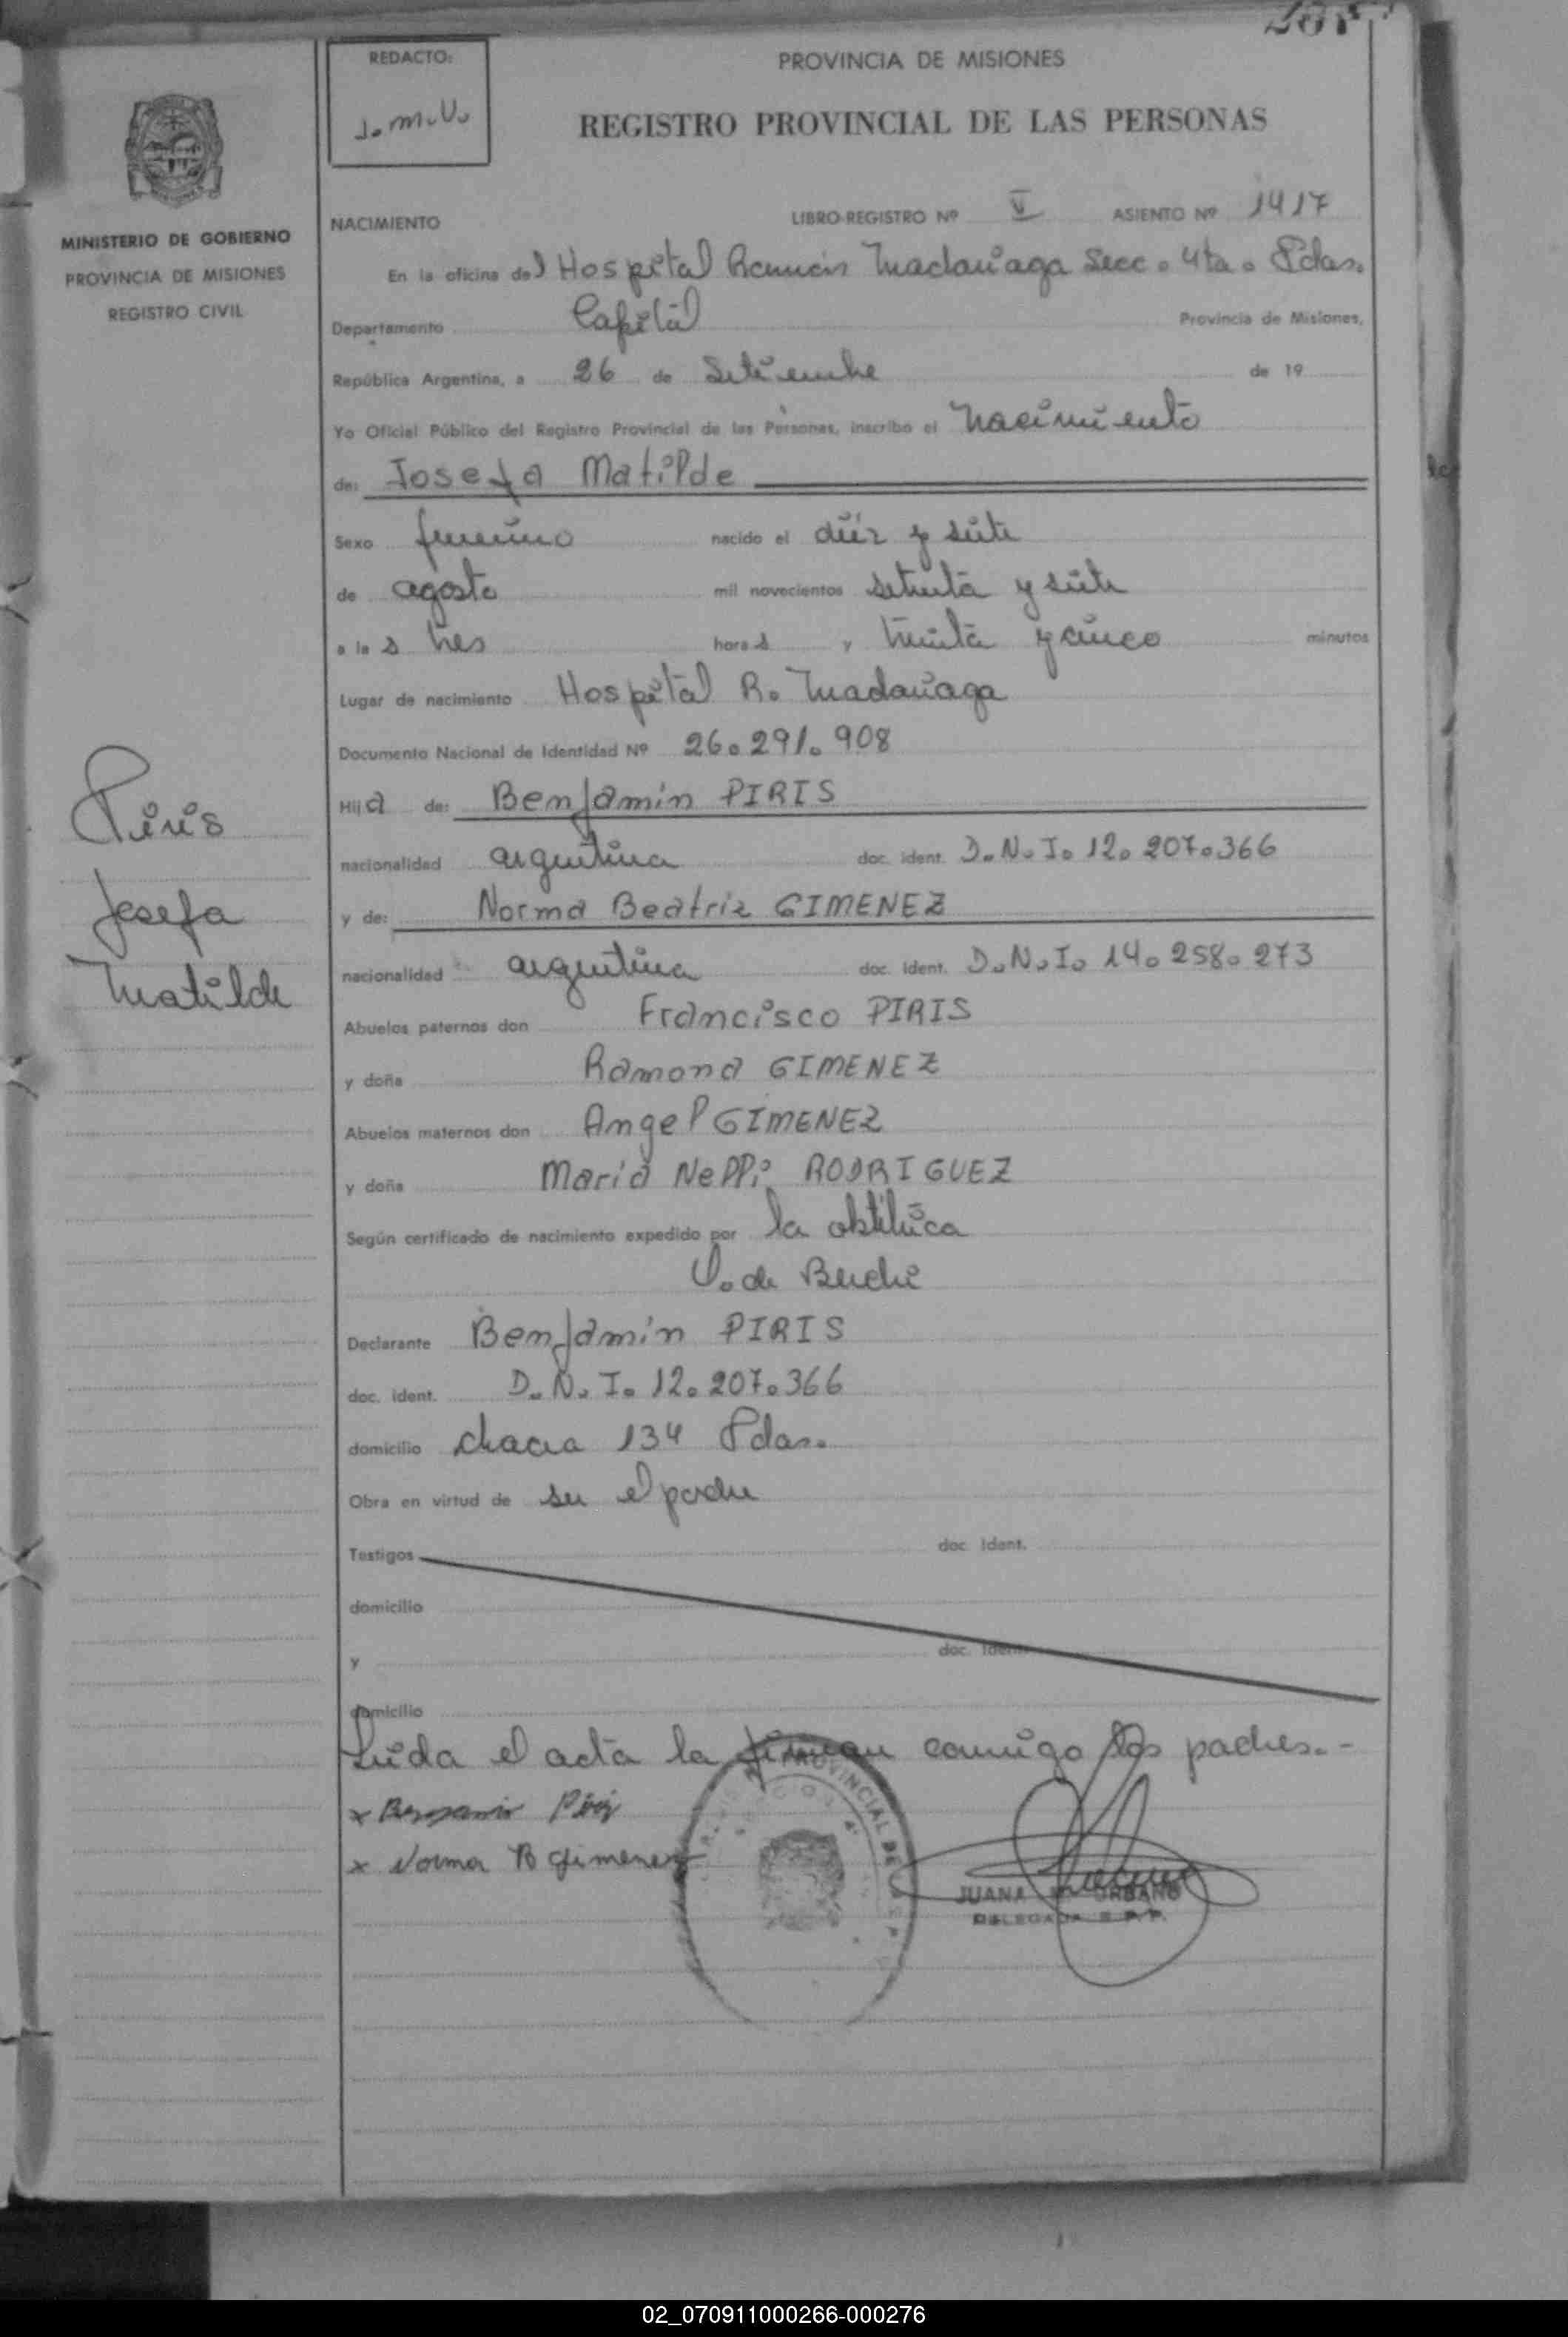 REDACTO:
J. M. U.
PROVINCIA DE MISIONES
REGISTRO PROVINCIAL DE LAS PERSONAS
MINISTERIO DE GOBIERNO
PROVINCIA DE MISIONES
REGISTRO CIVIL
NACIMIENTO LIBRO-REGISTRO Nº V ASIENTO Nº 1417
En la oficina del Hospital Ramón Madariaga Secc. 4ta. Pdas.
Departamento Capital Provincia de Misiones,
República Argentina, a 26 de Setiembre de 19
Yo Oficial Público del Registro Provincial de las Personas, inscribo el Nacimiento
de: Josefa Matilde
Sexo femenino nacido el diéz y siete
de agosto mil novecientos setenta y siete
a la s tres hora s y treinta y cinco minutos
Lugar de nacimiento Hospital R. Madariaga
Documento Nacional de Identidad Nº 26.291.908
Hij a de: Benjamin PIRIS
nacionalidad argentina doc. ident. D.N.I. 12.207.366
y de: Norma Beatriz GIMENEZ
nacionalidad argentina doc. ident. D.N.I. 14.258.273
Abuelos paternos don Francisco PIRIS
y doña Ramona GIMENEZ
Abuelos maternos don Angel GIMENEZ
y doña Maria Nelli RODRIGUEZ
Según certificado de nacimiento expedido por la obstétrica
V. de
Declarante Benjamin PIRIS
doc. ident. D.N.I. 12.207.366
domicilio chacra 134 Pdas.
Obra en virtud de ser el padre
Testigos doc. ident.
domicilio
y doc. ident.
domicilio
Leída el acta la firman conmigo los padres.-
x Benjamin Piris
x Norma B Gimenez
PROVINCIAL DE
JUANA M. URBANO
DELEGADA R.P.P.
Piris
Josefa
Matilde
02_070911000266-000276